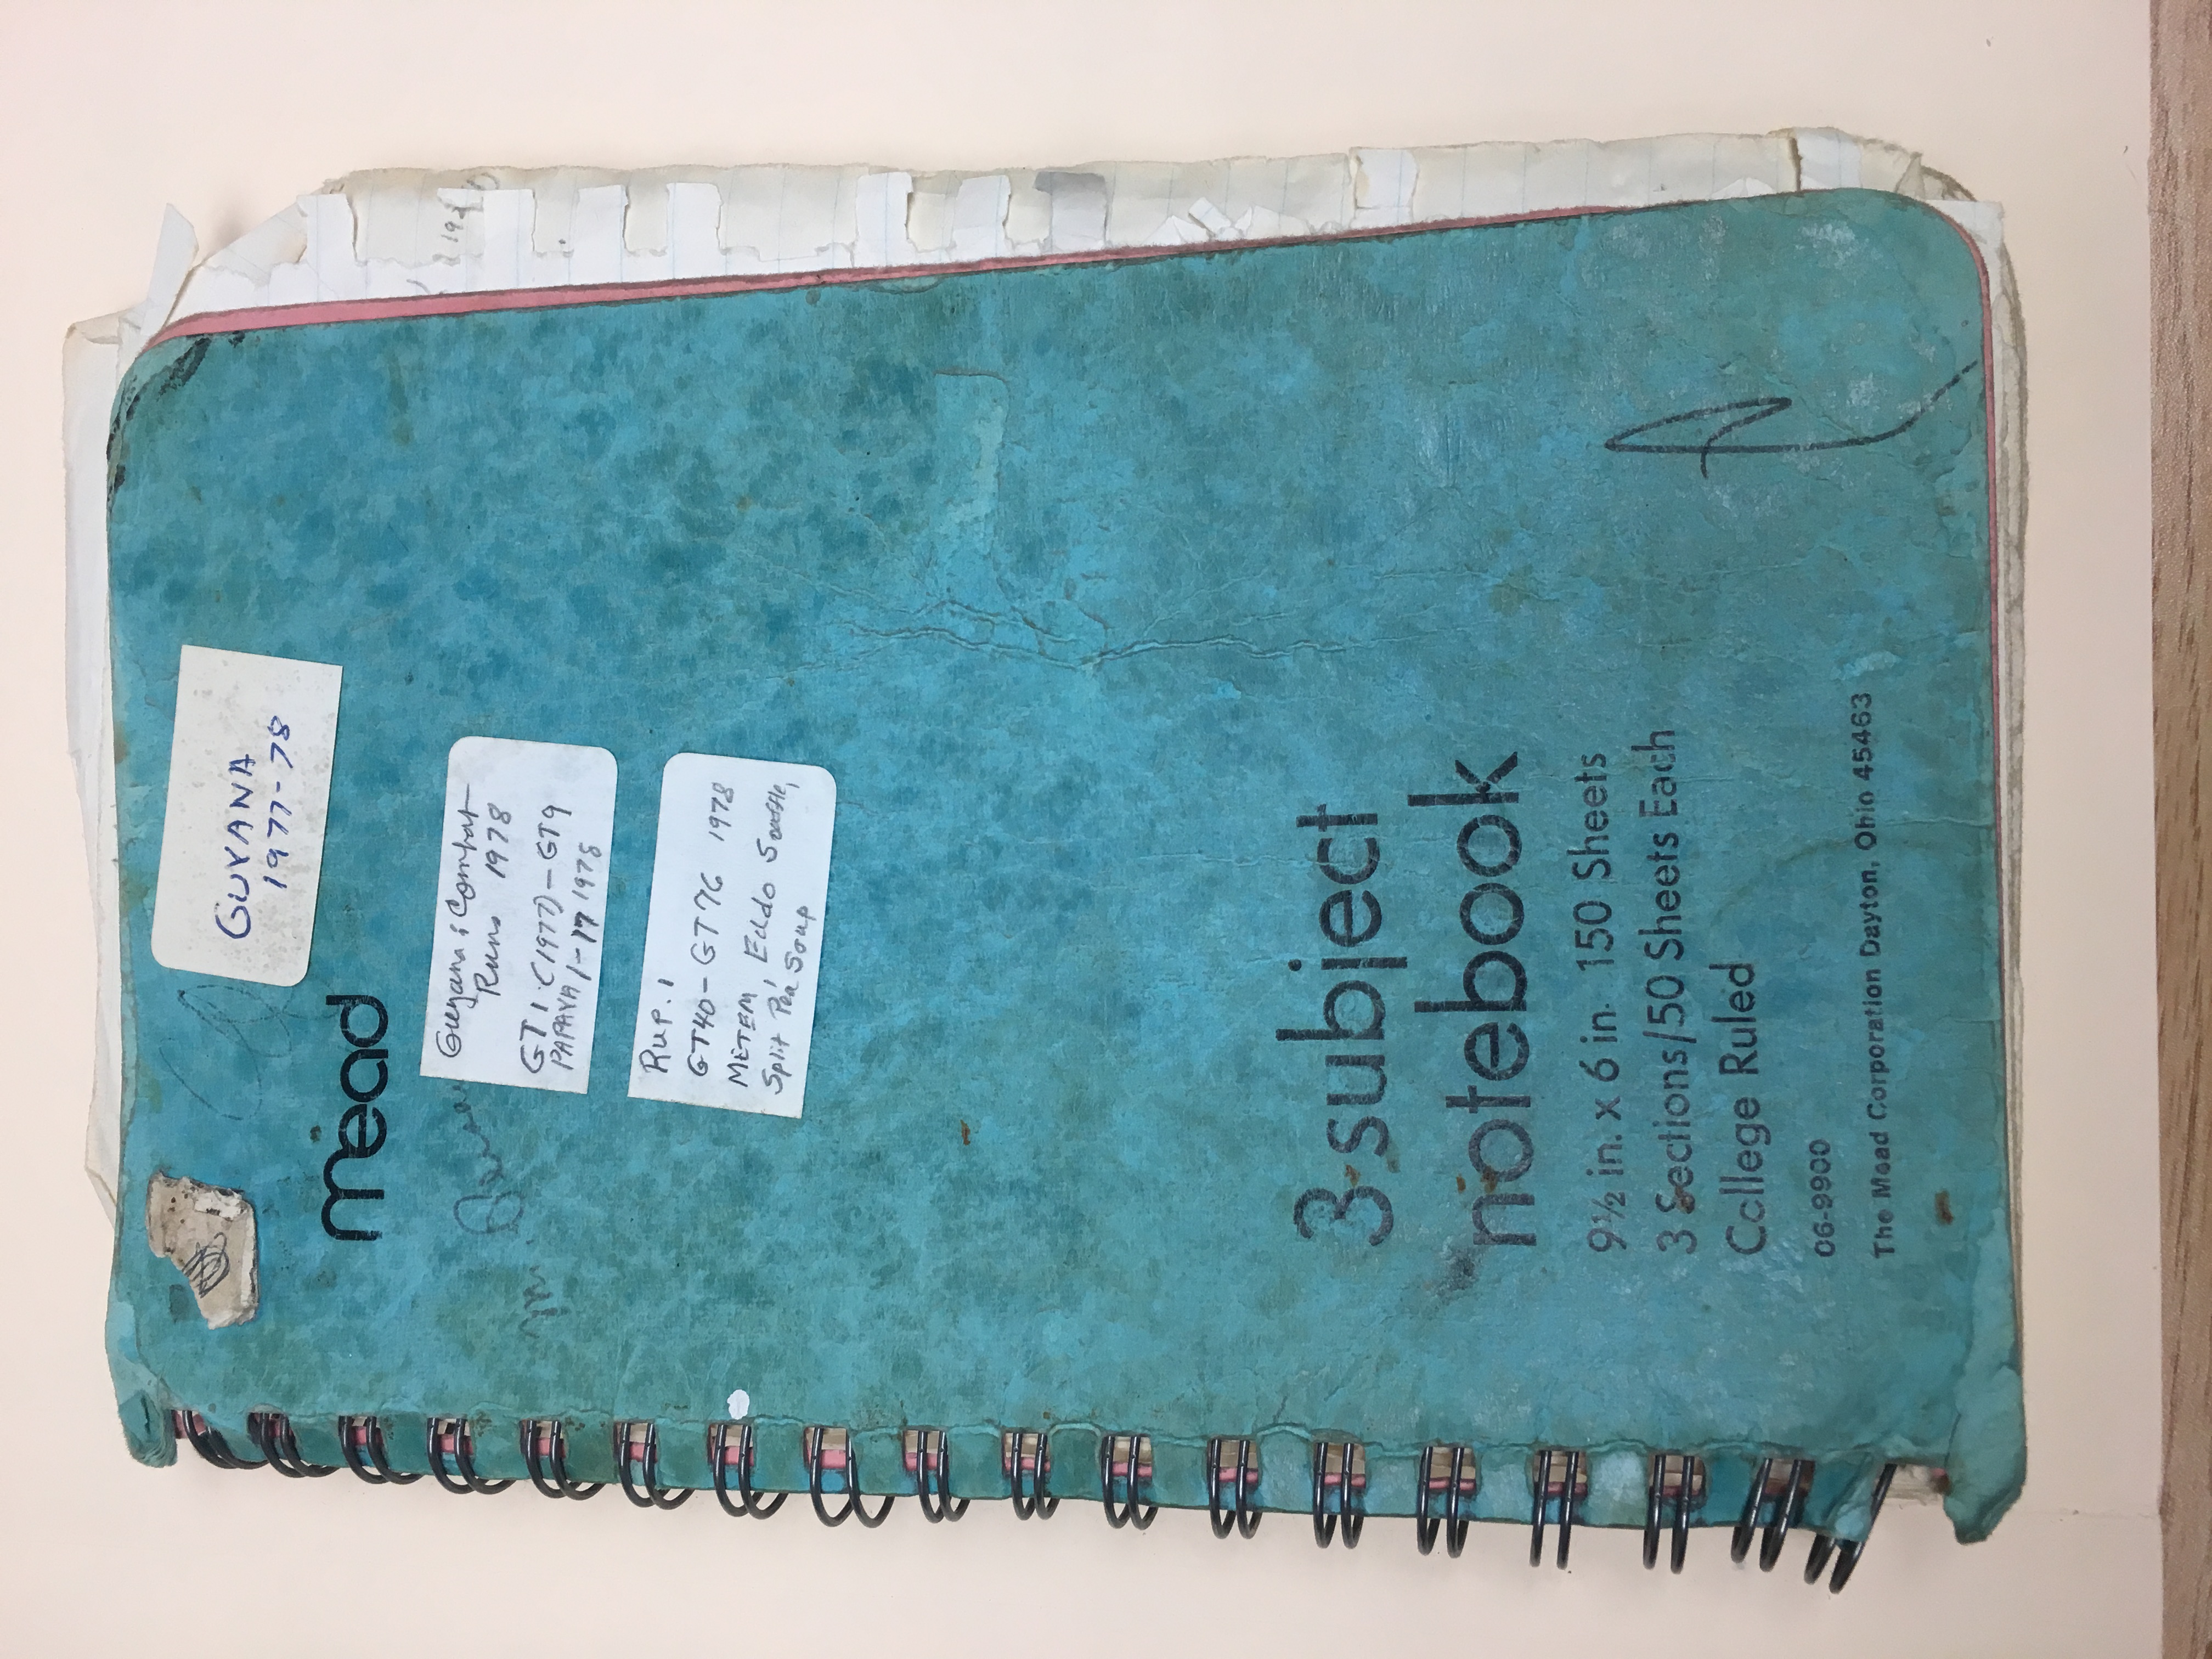 GUYANA
1977-78
mead
Guyana : Combat
Runs 1978
GT1 (1977) - GT9
PAPAYA 1-17 1978
Mr.
Rup. 1
GT40 - GT76 1978
METEM, Eddo Souffle,
Split Pea Soup
3 subject
notebook
9½ in. x 6 in. 150 Sheets
3 Sections/50 Sheets Each
College Ruled
06-9900
The Mead Corporation Dayton, Ohio 45463